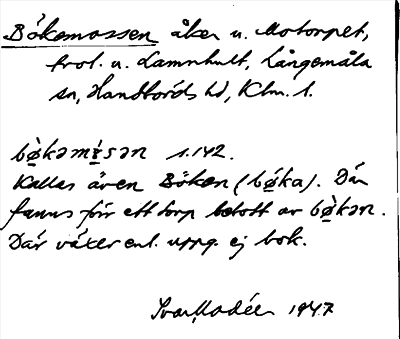 Bökemossen åker u. Motorpet,
fröl. u. Lammhult, Långemåla
sn, Handbörds hd, Klm. l.
bø̀kəmɛ̀sən s. 142.
Kallas även Böken (bø̀ka). Där
fanns förr ett torp av bø̀kən.
Där växer enl. uppg. ej bok.
Ivar Modéer 1947